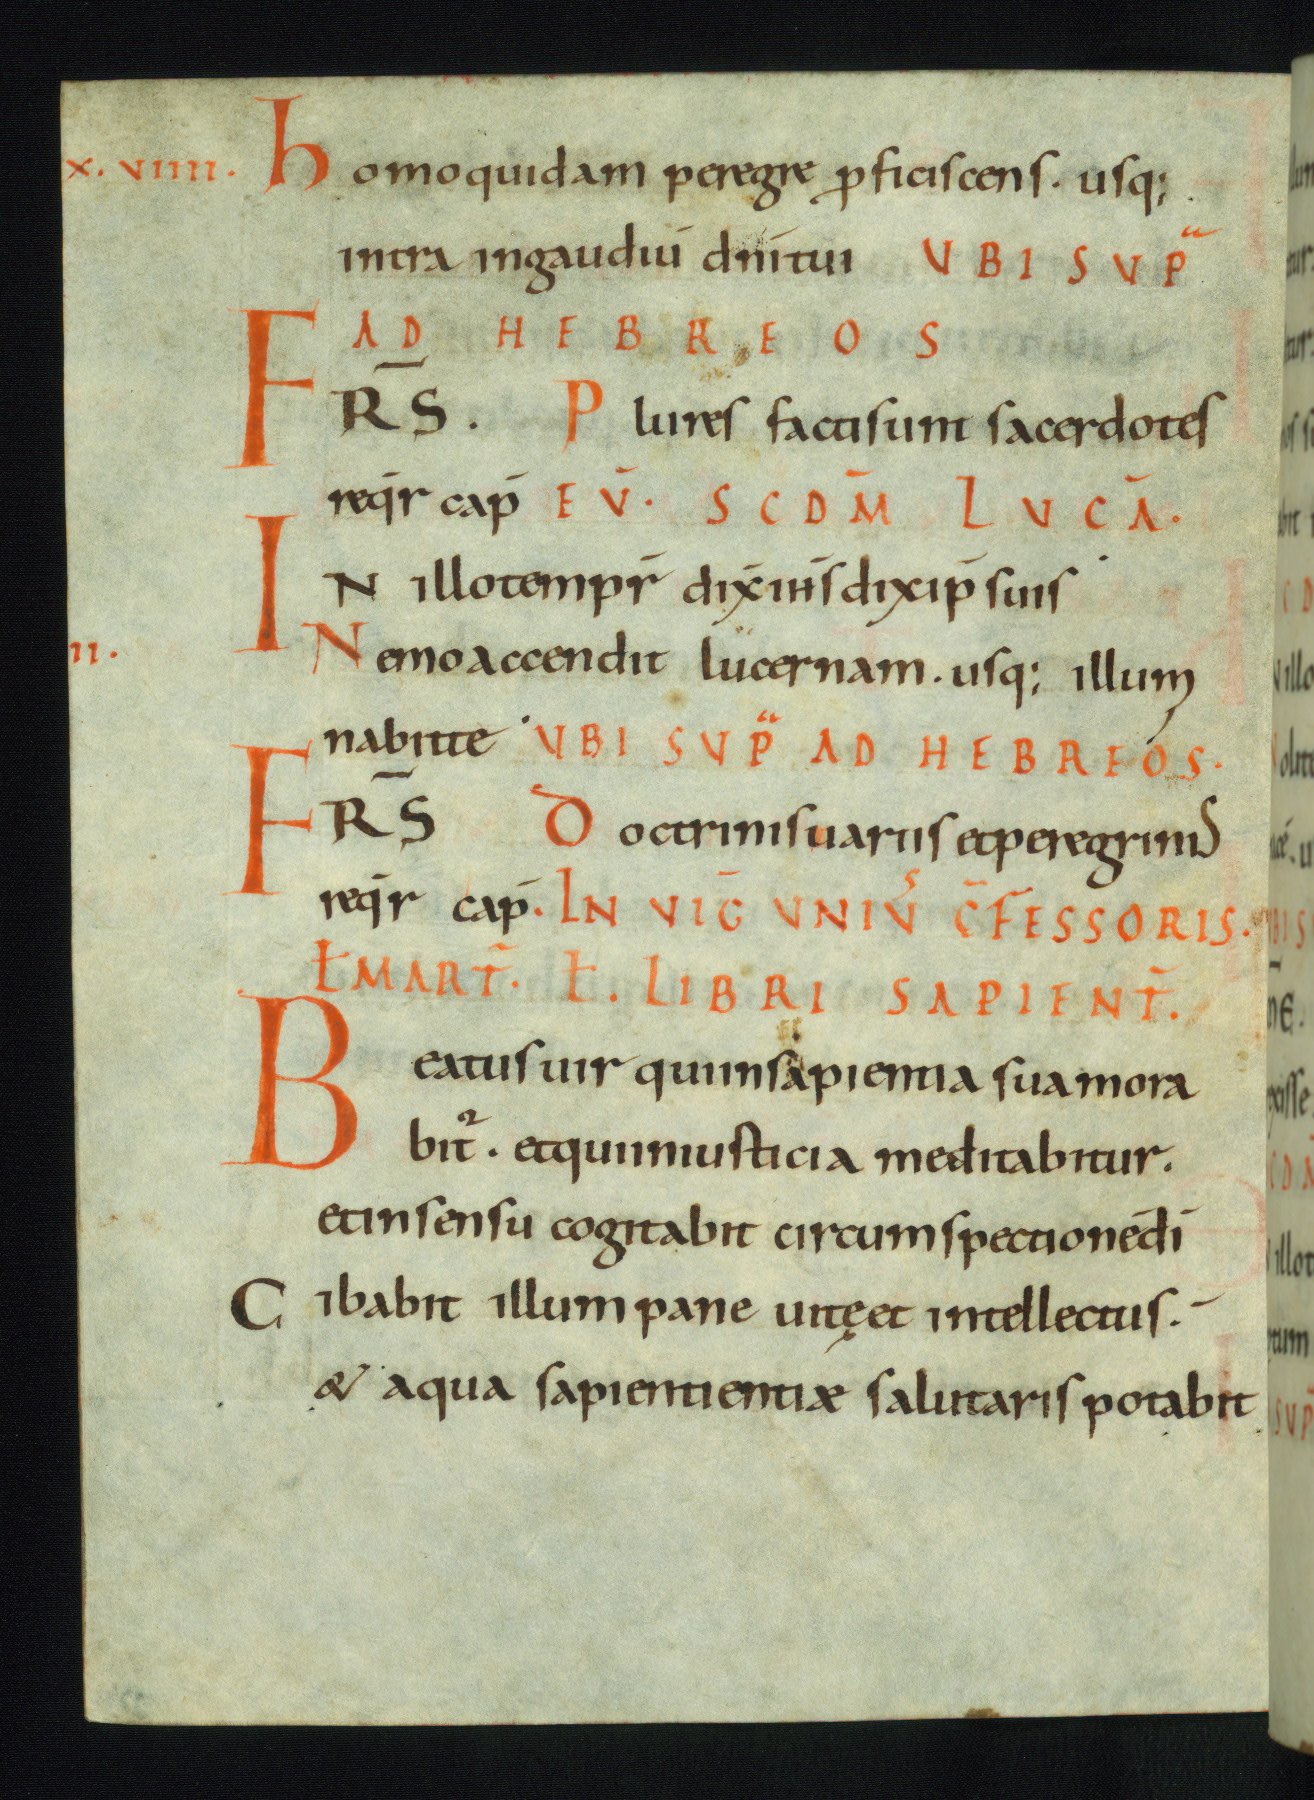 x. viiii. homoquidam peregre ꝓficiscens. usq;
intra ingaudiū dn̄i tui UBI SUPᵃ
AD HEBREOS
FRS̄. Plures facti sunt sacerdotes
req̄r cap̄ EṼ. SCDM̄ LUCĀ.
IN illo tempr̄ dix̄ ih̄s dixip̄ suis
ii. Nemo accendit lucernam. usq; illumi
nabit te UBI SUPᵃ AD HEBREOS.
FRS̄ Doctrinis uariis et peregrinis
req̄r cap̄. IN VIḠ UNIUˢ C̄FESSORIS.
ł MART̄. ł. LIBRI SAPIENT̄.
Beatus uir qui in sapientia sua mora
bit᷑. et qui in iusticia meditabitur.
et in sensu cogitabit circumspectionē dī
Cibabit illum pane uitę et intellectus.
& aqua sapientientiæ salutaris potabit